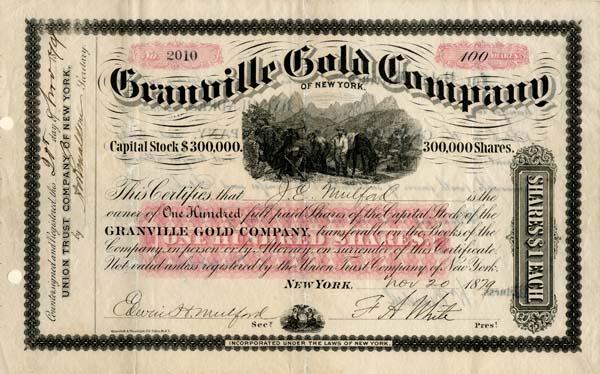 No. 2010
100 SHARES
Granville Gold Company
OF NEW YORK.
Capital Stock $300,000.
300,000 Shares.
This Certifies that J. E. Mulford is the
owner of One Hundred full paid Shares of the Capital Stock of the
GRANVILLE GOLD COMPANY, transferable on the Books of the
Company, in person or by Attorney, on surrender of this Certificate.
Not valid unless registered by the Union Trust Company of New York.
ONE HUNDRED SHARES
NEW YORK. Nov 20 1879
Edwin H. Mulford Secy.
F A White Prest.
INCORPORATED UNDER THE LAWS OF NEW YORK.
Countersigned and Registered this 20 day of Nov 1879
UNION TRUST COMPANY OF NEW YORK,
by Secretary
SHARES $1 EACH